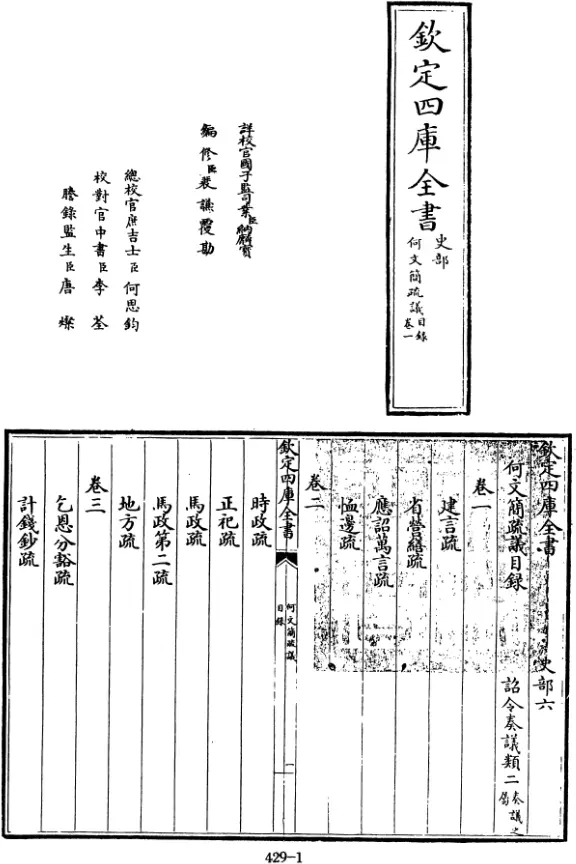 欽定四庫全書
史部
何文簡疏議目錄
卷一
詳校官國子監司業臣
編修臣裴謙覆勘
總校官庶吉士臣何思鈞
校對官中書臣李荃
謄錄監生臣唐燦
欽定四庫全書 史部六
何文簡疏議目錄 詔令奏議類二奏議之屬
卷一
建言疏
省營繕疏
應詔萬言疏
恤邊疏
卷二
欽定四庫全書
何文簡疏議
目錄
一
時政疏
正祀疏
馬政疏
馬政第二疏
地方疏
卷三
乞恩分豁疏
計錢鈔疏
429-1